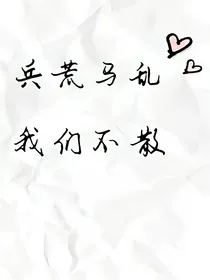 兵荒马乱
我们不散